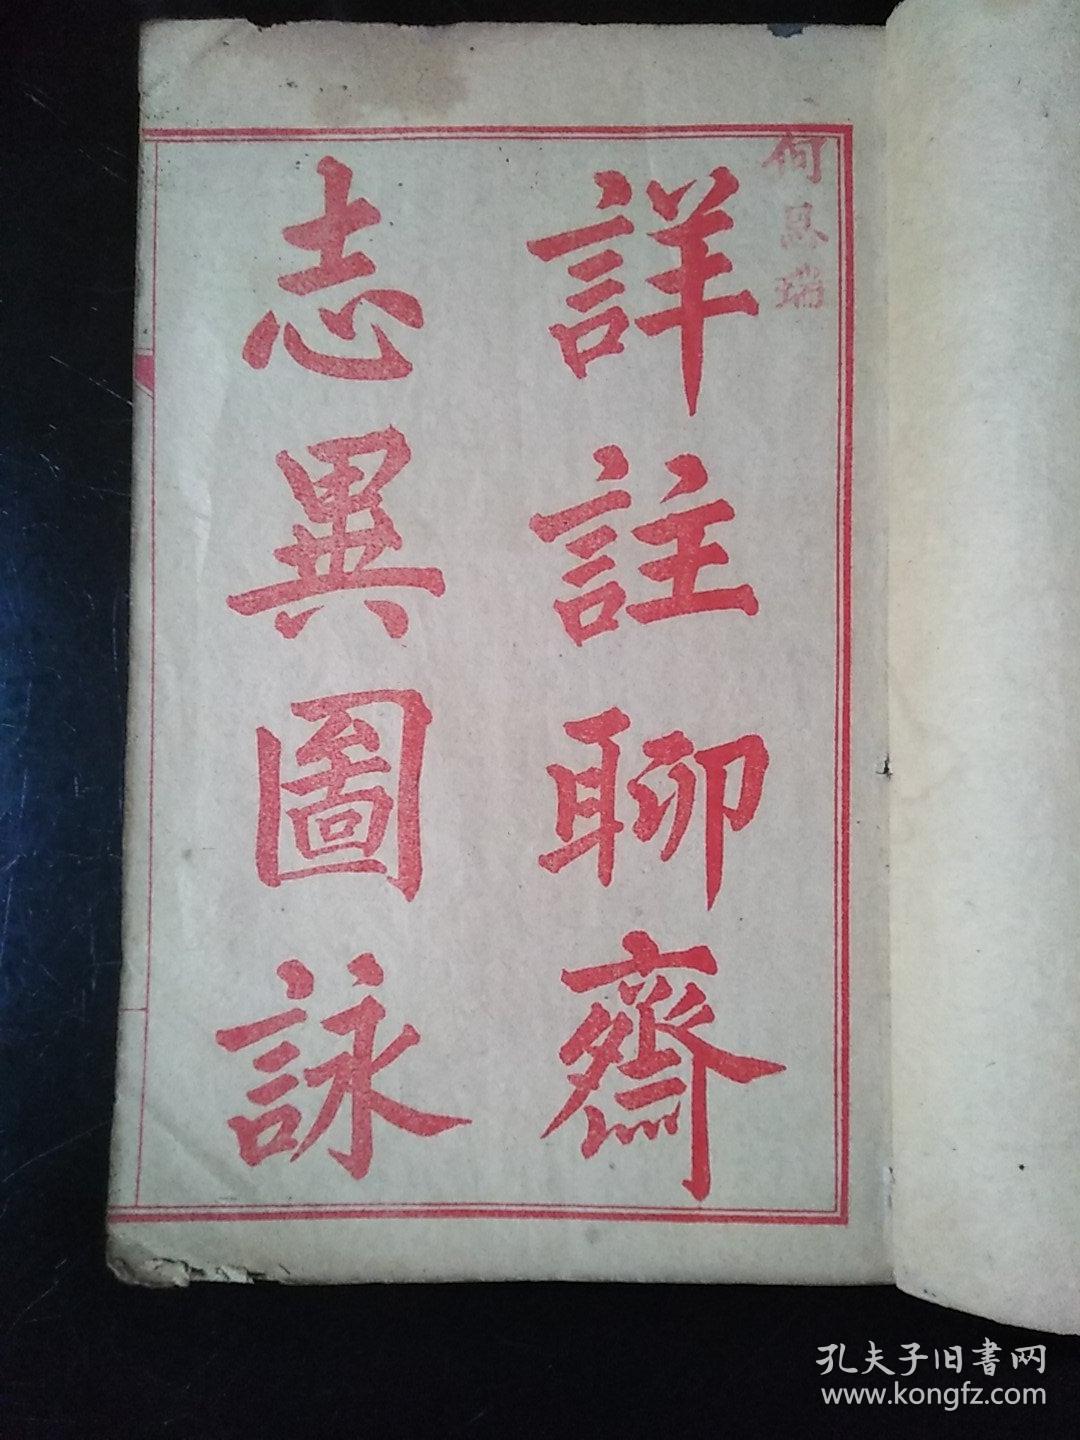 何恩瑞
詳註聊齋
志異圖詠
孔夫子旧書网
www.kongfz.com